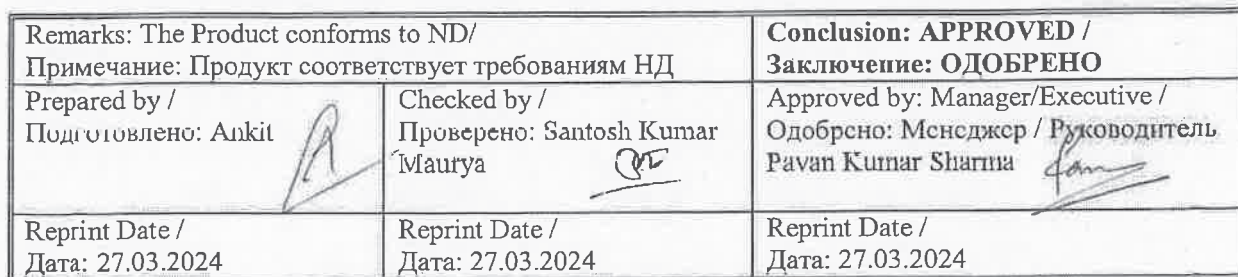 Remarks: The Product conforms to ND/
Примечание: Продукт соответствует требованиям НД
Conclusion: APPROVED /
Заключение: ОДОБРЕНО
Prepared by /
Подготовлено: Ankit
Checked by /
Проверено: Santosh Kumar
Maurya
Approved by: Manager/Executive /
Одобрено: Менеджер / Руководитель
Pavan Kumar Sharma
Reprint Date /
Дата: 27.03.2024
Reprint Date /
Дата: 27.03.2024
Reprint Date /
Дата: 27.03.2024